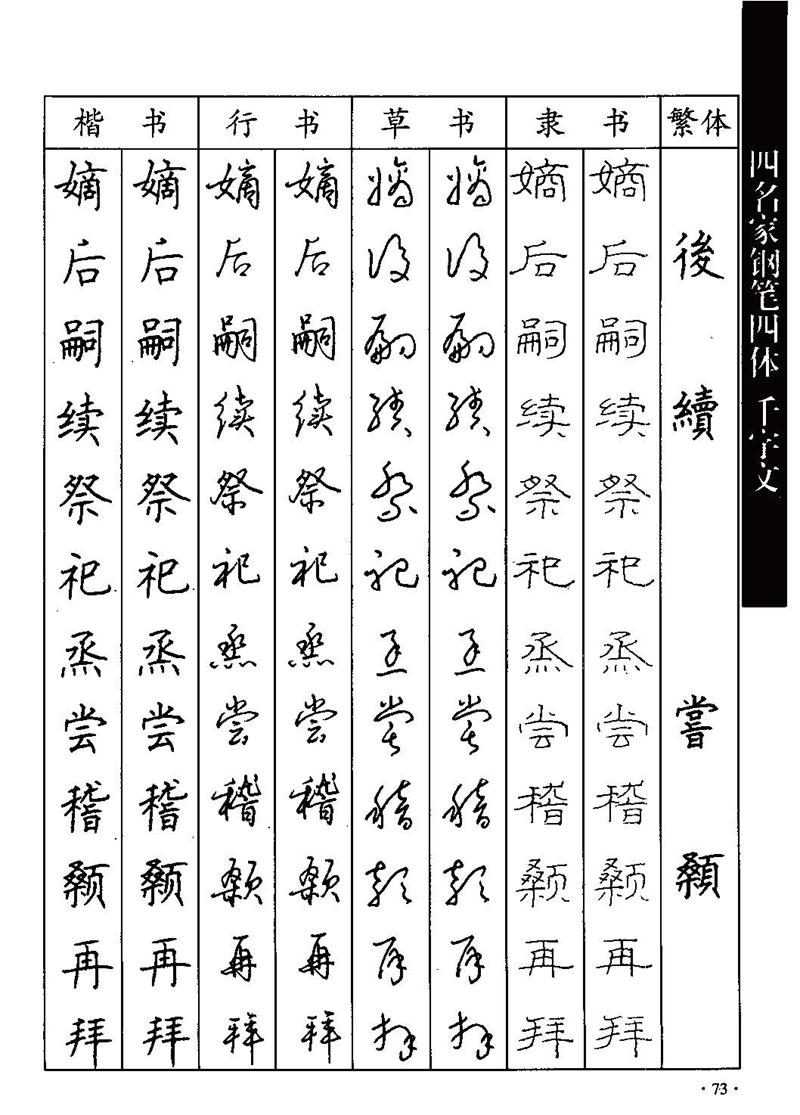 楷书 行书 草书 隶书 繁体
嫡 嫡 嫡 嫡 嫡 嫡 嫡 嫡
后 后 后 后 後 後 后 后 後
嗣 嗣 嗣 嗣 嗣 嗣 嗣 嗣
续 续 续 续 续 续 续 续 續
祭 祭 祭 祭 祭 祭 祭 祭
祀 祀 祀 祀 祀 祀 祀 祀
烝 烝 烝 烝 烝 烝 烝 烝
尝 尝 尝 尝 尝 尝 尝 尝 嘗
稽 稽 稽 稽 稽 稽 稽 稽
颡 颡 颡 颡 颡 颡 颡 颡 顙
再 再 再 再 再 再 再 再
拜 拜 拜 拜 拜 拜 拜 拜
四名家钢笔四体 千字文
·73·